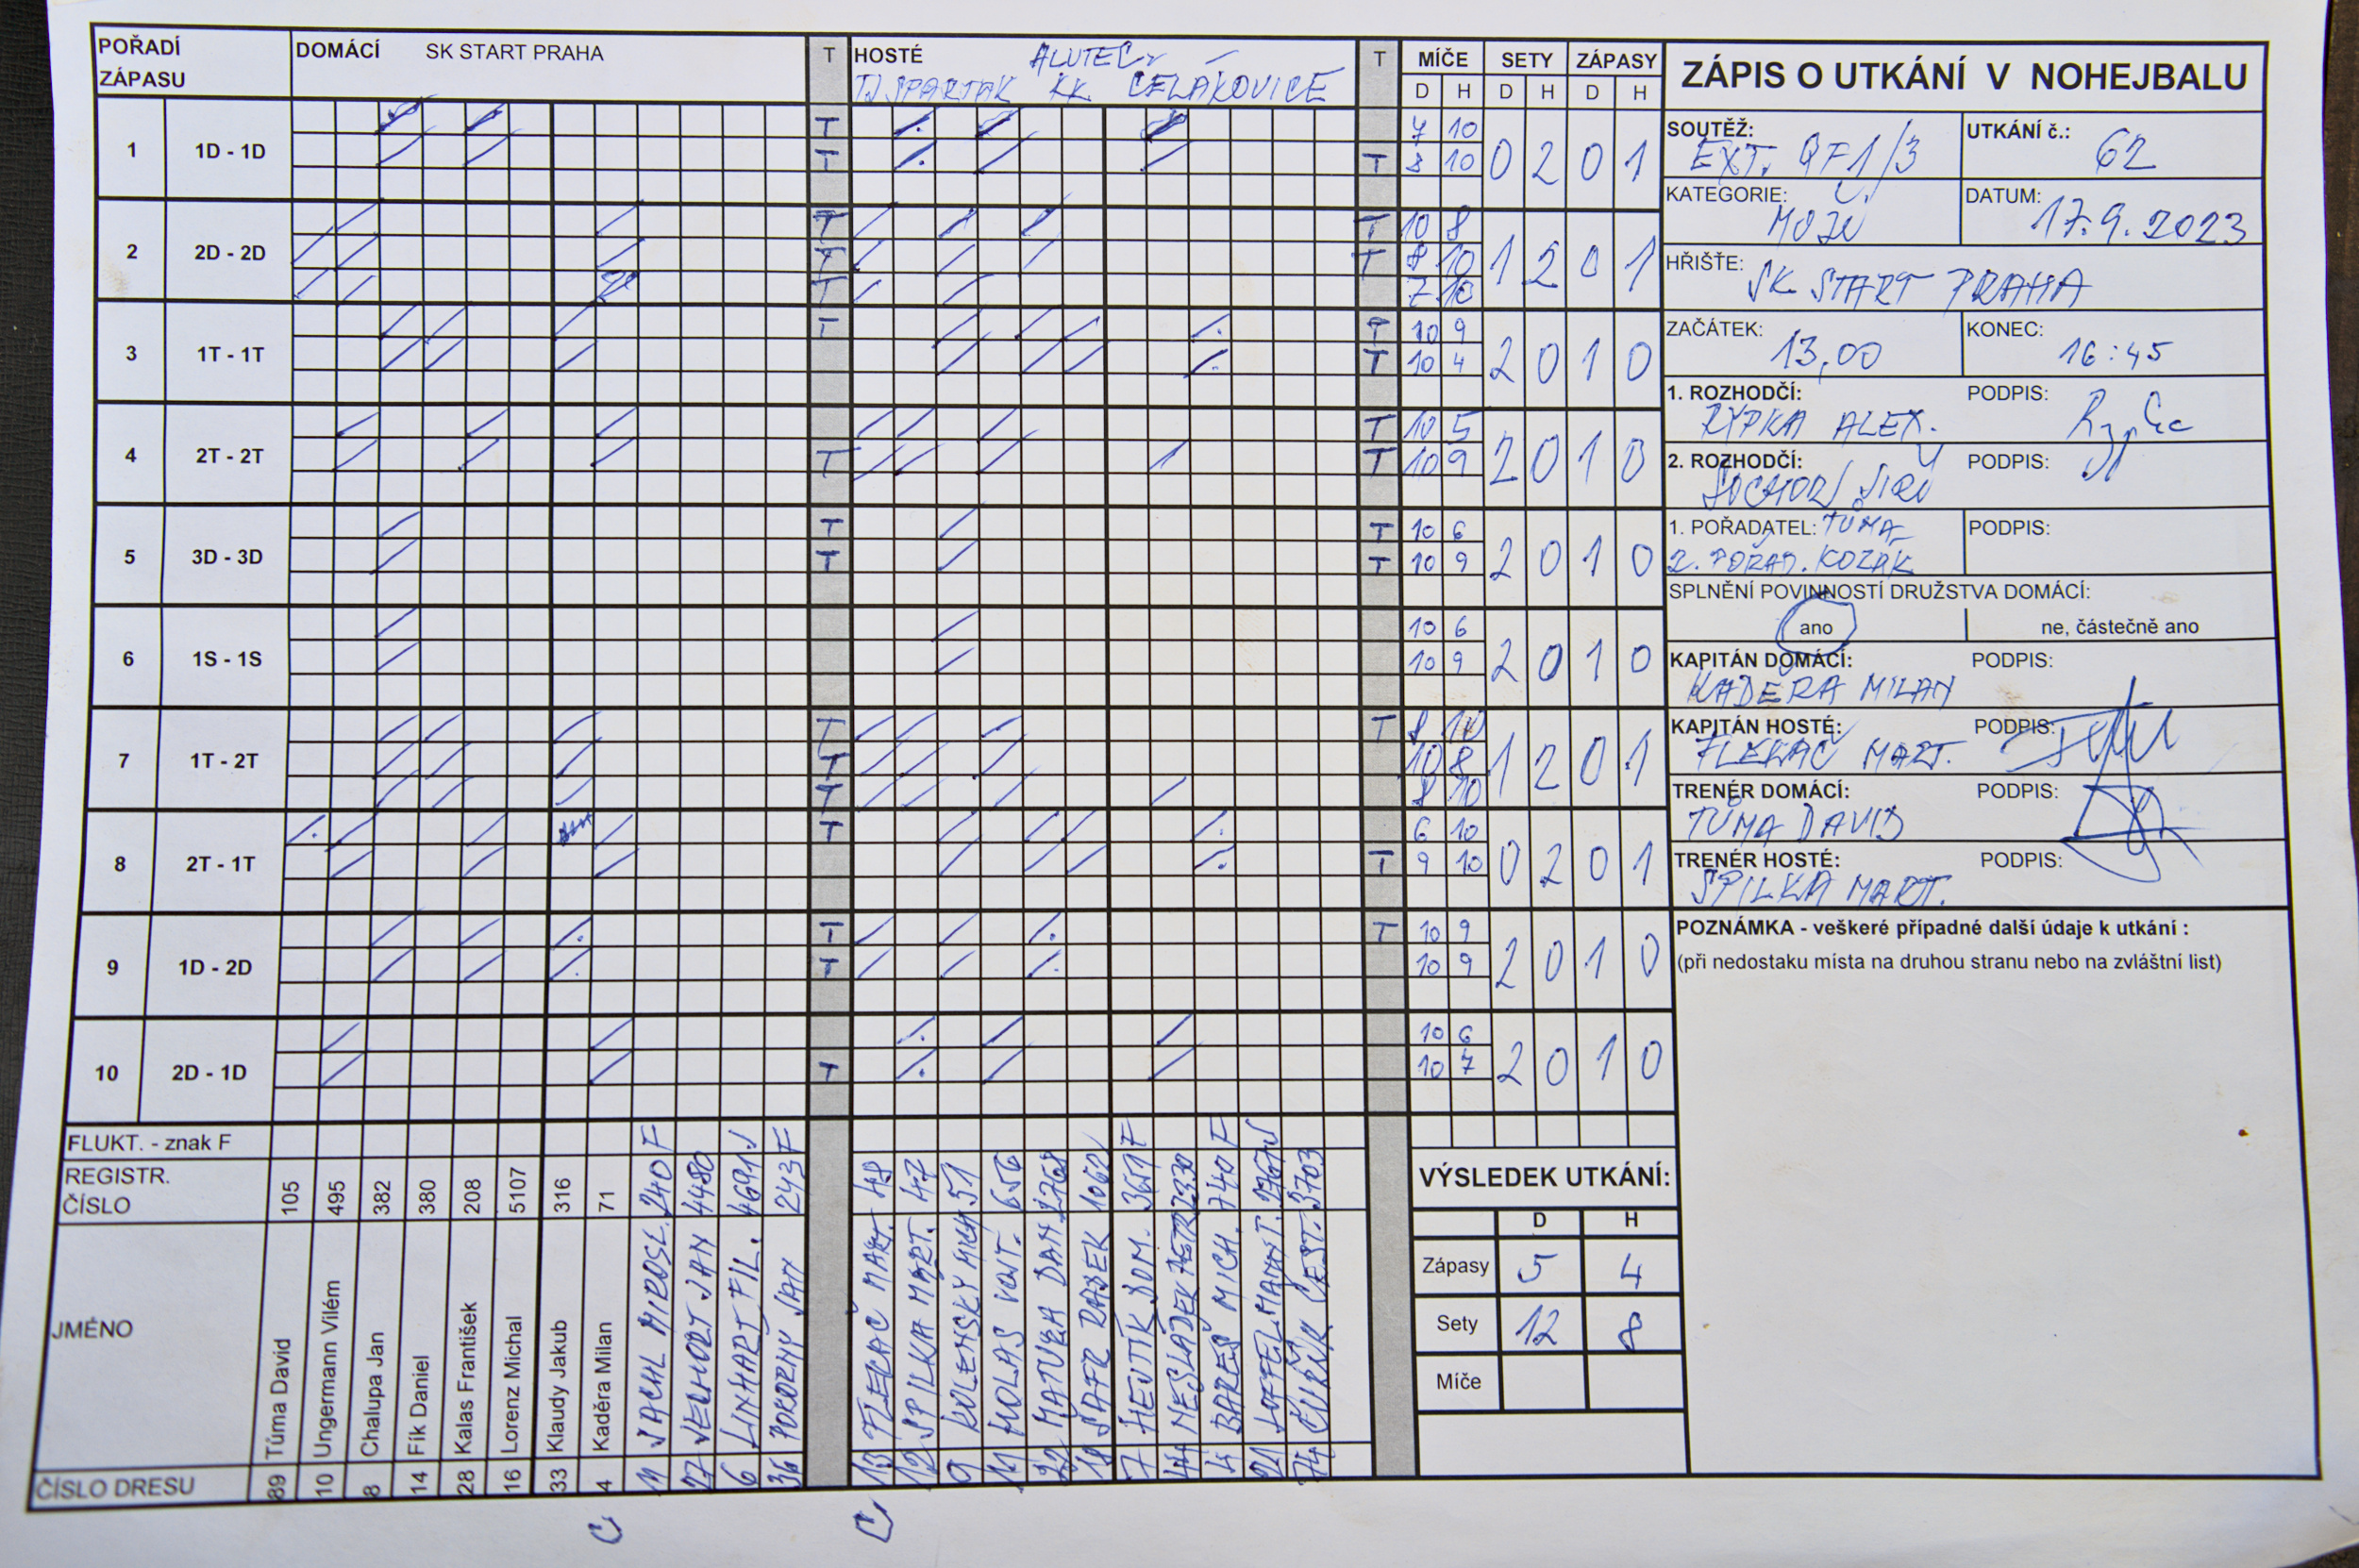 POŘADÍ ZÁPASU DOMÁCÍ SK START PRAHA T HOSTÉ ALUTEC TJ SPARTAK KK ČELÁKOVICE T MÍČE SETY ZÁPASY
D H D H D H
1 1D - 1D T 7 10 0 2 0 1
T T 8 10
2 2D - 2D T T 10 8 1 2 0 1
T T 8 10
T 7 10
3 1T - 1T T T 10 9 2 0 1 0
T 10 4
4 2T - 2T T 10 5 2 0 1 0
T T 10 9
5 3D - 3D T T 10 6 2 0 1 0
T T 10 9
6 1S - 1S 10 6 2 0 1 0
10 9
7 1T - 2T T T 8 10 1 2 0 1
T 10 8
T 8 10
8 2T - 1T T 6 10 0 2 0 1
T 9 10
9 1D - 2D T T 10 9 2 0 1 0
T 10 9
10 2D - 1D 10 6 2 0 1 0
T 10 7
FLUKT. - znak F
REGISTR. ČÍSLO
JMÉNO
ČÍSLO DRESU
89 Tůma David 105
10 Ungermann Vilém 495
8 Chalupa Jan 382
14 Fík Daniel 380
28 Kalas František 208
16 Lorenz Michal 5107
33 Klaudy Jakub 316
4 Kaděra Milan 71
11 JACHL MIROSL. 240 F
27 JAN 4480
6 LINHART FIL. 4691
36 POKORNÝ JAN 243 F
13 FLEKAČ MART. 48
12 SPILKA MART. 47
9 KOLENSKÝ MICH 51
11 MOLAS VOJT. 656
22 MATURA DAN 2768
18 ŠAFR RADEK 1062
7 HEJTÍK DOM. 3651 F
44 NESLÁDEK PETR 2330
4 BAREŠ MICH. 740 F
21
74
C
C
ZÁPIS O UTKÁNÍ V NOHEJBALU
SOUTĚŽ: EXT. QF1/3
UTKÁNÍ č.: 62
KATEGORIE: MUŽI
DATUM: 17.9.2023
HŘIŠTĚ: SK START PRAHA
ZAČÁTEK: 13,00
KONEC: 16:45
1. ROZHODČÍ: RYPKA ALEX.
PODPIS:
2. ROZHODČÍ: SOCHOR JIŘÍ
PODPIS:
1. POŘADATEL: TŮMA
2. POŘAD. KOZÁK
PODPIS:
SPLNĚNÍ POVINNOSTÍ DRUŽSTVA DOMÁCÍ:
ano
ne, částečně ano
KAPITÁN DOMÁCÍ: KADĚRA MILAN
PODPIS:
KAPITÁN HOSTÉ: FLEKAČ MART.
PODPIS:
TRENÉR DOMÁCÍ: TŮMA DAVID
PODPIS:
TRENÉR HOSTÉ: SPILKA MART.
PODPIS:
POZNÁMKA - veškeré případné další údaje k utkání :
(při nedostaku místa na druhou stranu nebo na zvláštní list)
VÝSLEDEK UTKÁNÍ:
D H
Zápasy 5 4
Sety 12 8
Míče